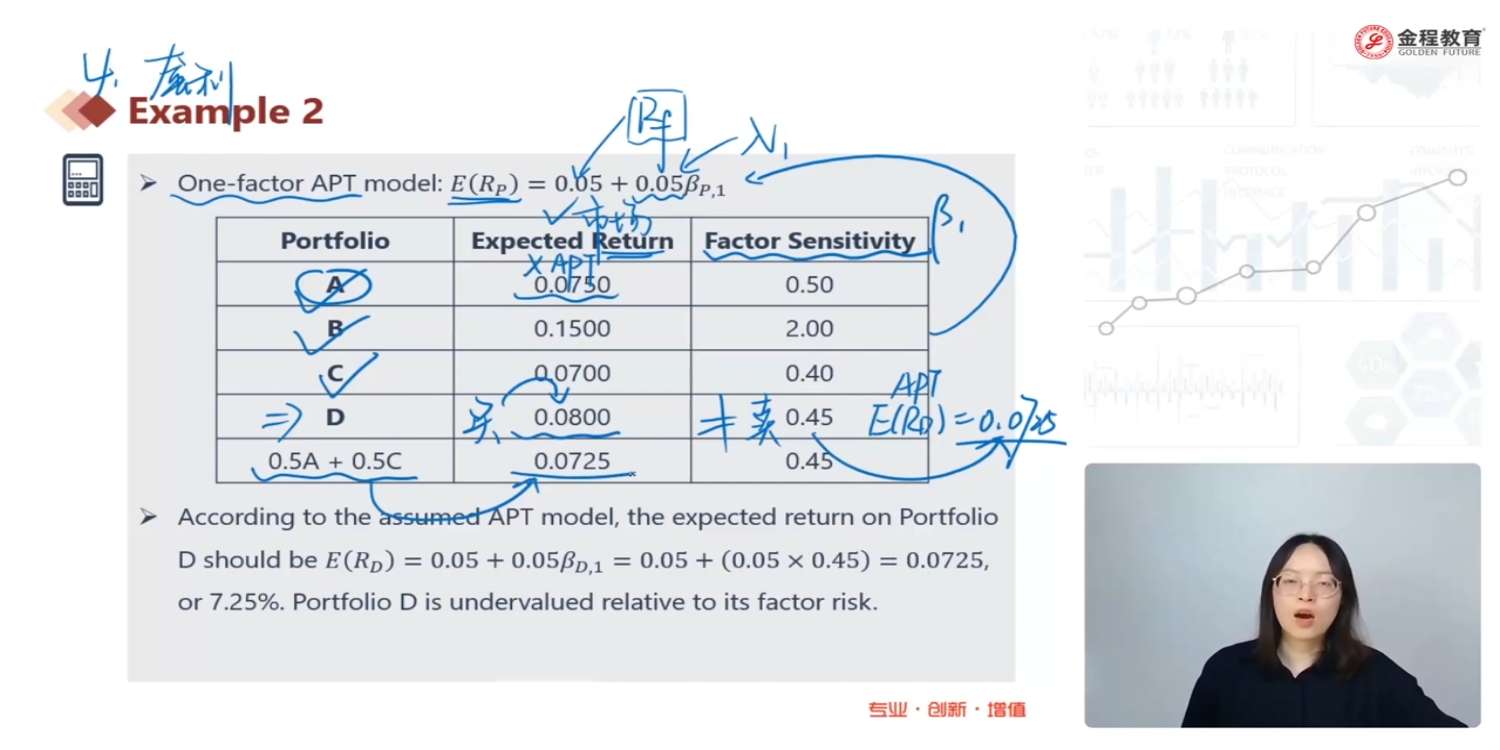 金程教育
GOLDEN FUTURE
4. 套利
Example 2
Rf
λ1
➢ One-factor APT model: E(R_P) = 0.05 + 0.05β_{P,1}
✓市场
β1
Portfolio Expected Return Factor Sensitivity
× APT
A 0.0750 0.50
B 0.1500 2.00
C 0.0700 0.40
APT
⇒ D 买 0.0800 卖 0.45 E(R_D) = 0.0725
0.5A + 0.5C 0.0725 0.45
➢ According to the assumed APT model, the expected return on Portfolio
D should be E(R_D) = 0.05 + 0.05β_{D,1} = 0.05 + (0.05 × 0.45) = 0.0725,
or 7.25%. Portfolio D is undervalued relative to its factor risk.
专业·创新·增值